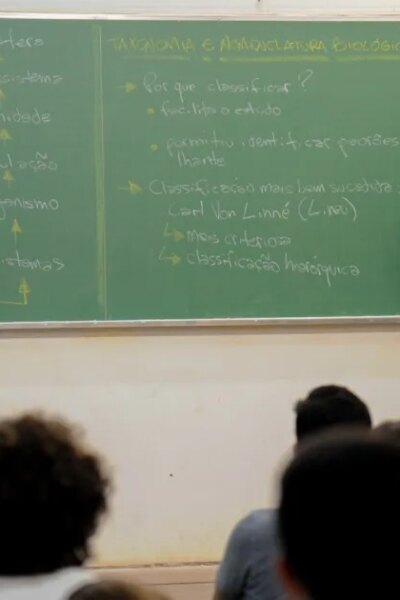 sfera
ossistema
nidade
ulação
ganismo
istemas
TAXONOMIA E NOMENCLATURA BIOLÓGIC
Por que classificar?
facilita o estudo
permitiu identificar padrões
lhante
Classificação mais bem sucedida
Carl Von Linné (Lineu)
mais criterios
classificação hierárquica